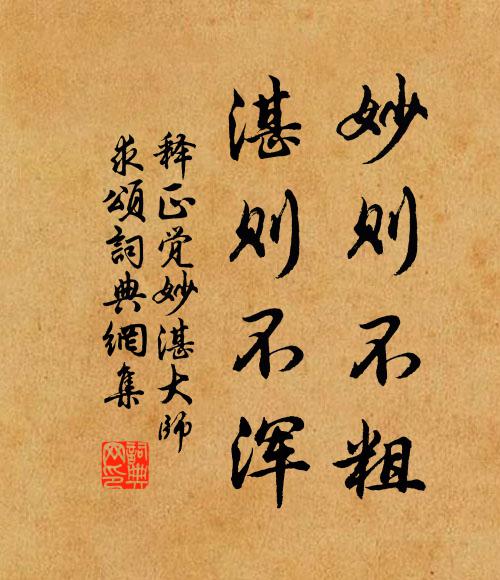 妙则不粗
湛则不浑
释正觉妙湛大师
求颂詞典網集
詞典
网印